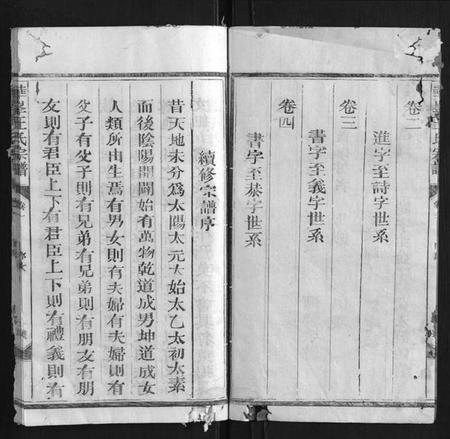 卷二
進字至詩字世系
卷三
書字至義字世系
卷四
書字至恭字世系
續修宗譜序
昔天地未分為太陽太元太始太乙太初太素
而後陰陽開闢始有萬物乾道成男坤道成女
人類所由生焉有男女則有夫婦有夫婦則有
父子有父子則有兄弟有兄弟則有朋友有朋
友則有君臣上下有君臣上下則有禮義則有
王氏宗譜